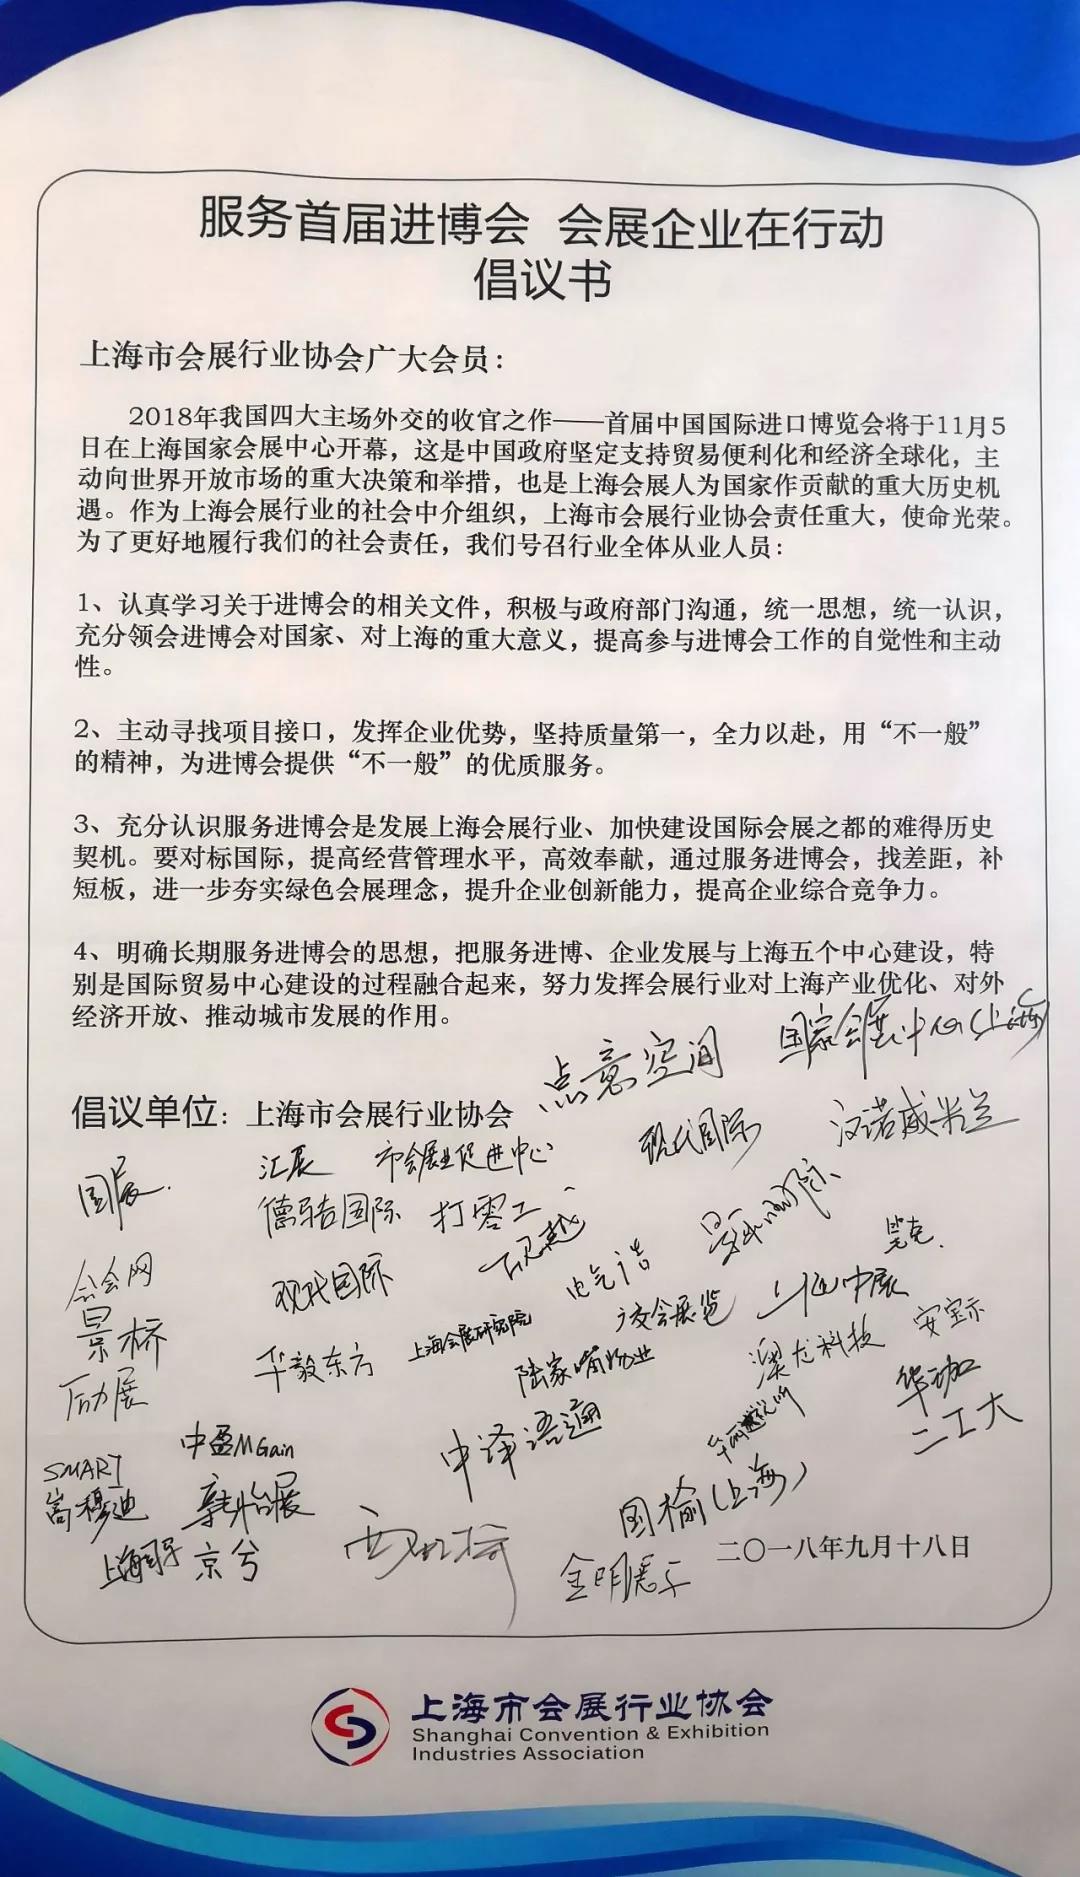 服务首届进博会 会展企业在行动
倡议书
上海市会展行业协会广大会员：
2018年我国四大主场外交的收官之作——首届中国国际进口博览会将于11月5
日在上海国家会展中心开幕，这是中国政府坚定支持贸易便利化和经济全球化，主
动向世界开放市场的重大决策和举措，也是上海会展人为国家作贡献的重大历史机
遇。作为上海会展行业的社会中介组织，上海市会展行业协会责任重大，使命光荣。
为了更好地履行我们的社会责任，我们号召行业全体从业人员：
1、认真学习关于进博会的相关文件，积极与政府部门沟通，统一思想，统一认识，
充分领会进博会对国家、对上海的重大意义，提高参与进博会工作的自觉性和主动
性。
2、主动寻找项目接口，发挥企业优势，坚持质量第一，全力以赴，用“不一般”
的精神，为进博会提供“不一般”的优质服务。
3、充分认识服务进博会是发展上海会展行业、加快建设国际会展之都的难得历史
契机。要对标国际，提高经营管理水平，高效奉献，通过服务进博会，找差距，补
短板，进一步夯实绿色会展理念，提升企业创新能力，提高企业综合竞争力。
4、明确长期服务进博会的思想，把服务进博、企业发展与上海五个中心建设，特
别是国际贸易中心建设的过程融合起来，努力发挥会展行业对上海产业优化、对外
经济开放、推动城市发展的作用。
点意空间
国家会展中心（上海）
倡议单位：上海市会展行业协会
国展
汇展
市会展业促进中心
现代国际
汉诺威米兰
德马吉国际
打零工
现代国际
景桥
华毅东方
上海会展研究院
陆家嘴物业
澳龙科技
安宝示
励展
华珈
二工大
中盈MGain
中译语通
SMART
高穆迪
京兮
国榆（上海）
金明展示
二〇一八年九月十八日
上海市会展行业协会
Shanghai Convention & Exhibition
Industries Association